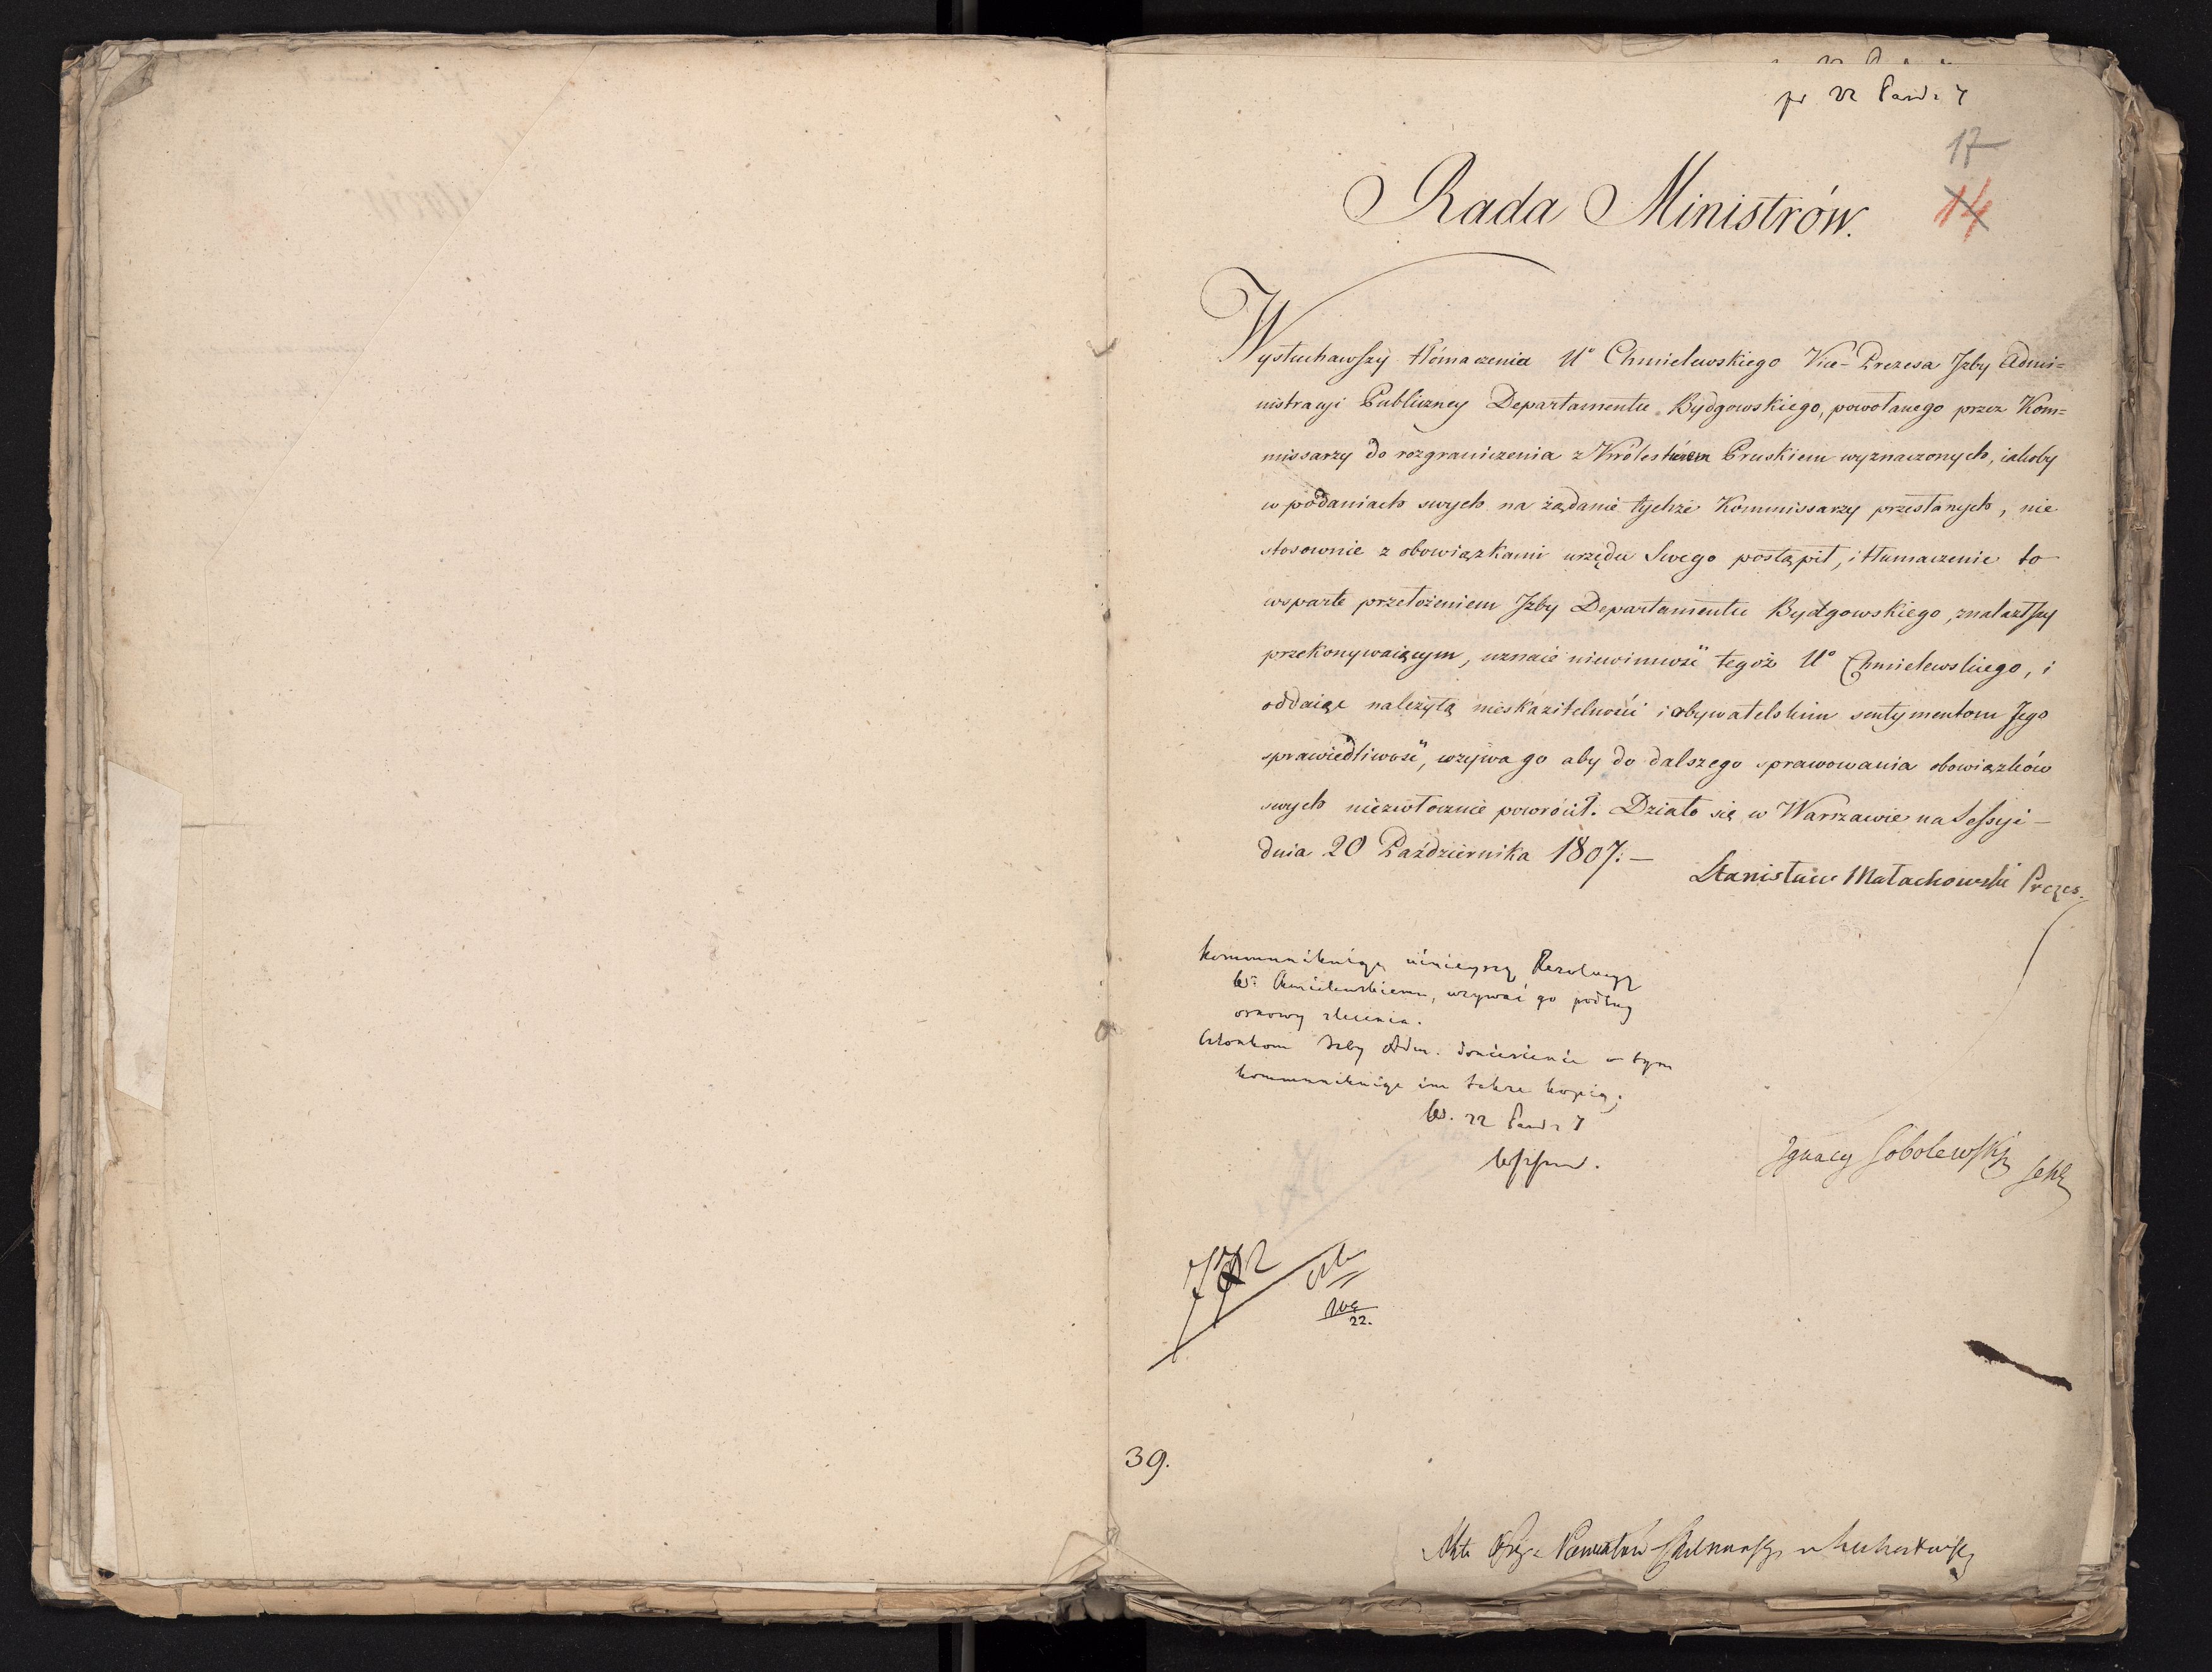 pr 22 Paźd. 7
17
14
Rada Ministrów.
Wysłuchawszy tłómaczenia Uo Chmielewskiego Vice-Prezesa Jzby Admi=
nistracyi Publiczney Departamentu Bydgowskiego, powołanego przez Kom=
missarzy do rozgraniczenia z Królestwem Pruskiem wyznaczonych, iakoby
w podaniach swych na żądanie tychże Kommissarzy przesłanych, nie
stosownie z obowiązkami urzędu Swego postąpił, i tłumaczenie to
wsparte przełożeniem Jzby Departamentu Bydgowskiego, znalazłszy
przekonywaiącym, uznaie niewinność tegoż Uo Chmielewskiego, i
oddaiąc należytą nieskazitelności i obywatelskim sentymentom Jego
sprawiedliwość, wzywa go aby do dalszego sprawowania obowiązków
swych niezwłocznie powrócił. Działo się w Warszawie na Sessyi –
dnia 20 Października 1807. –
Stanisław Małachowski Prezes.
kommunikuiąc ninieyszą Rezolucyą
W. Chmielewskiemu, wzywać go podług
osnowy zlecenia.
Członkom Izby Adm. doniesienie o tym
kommunikuiąc im także kopią.
W. 22 Paźd. 7
Ignacy Sobolewski Sekr
22.
39.